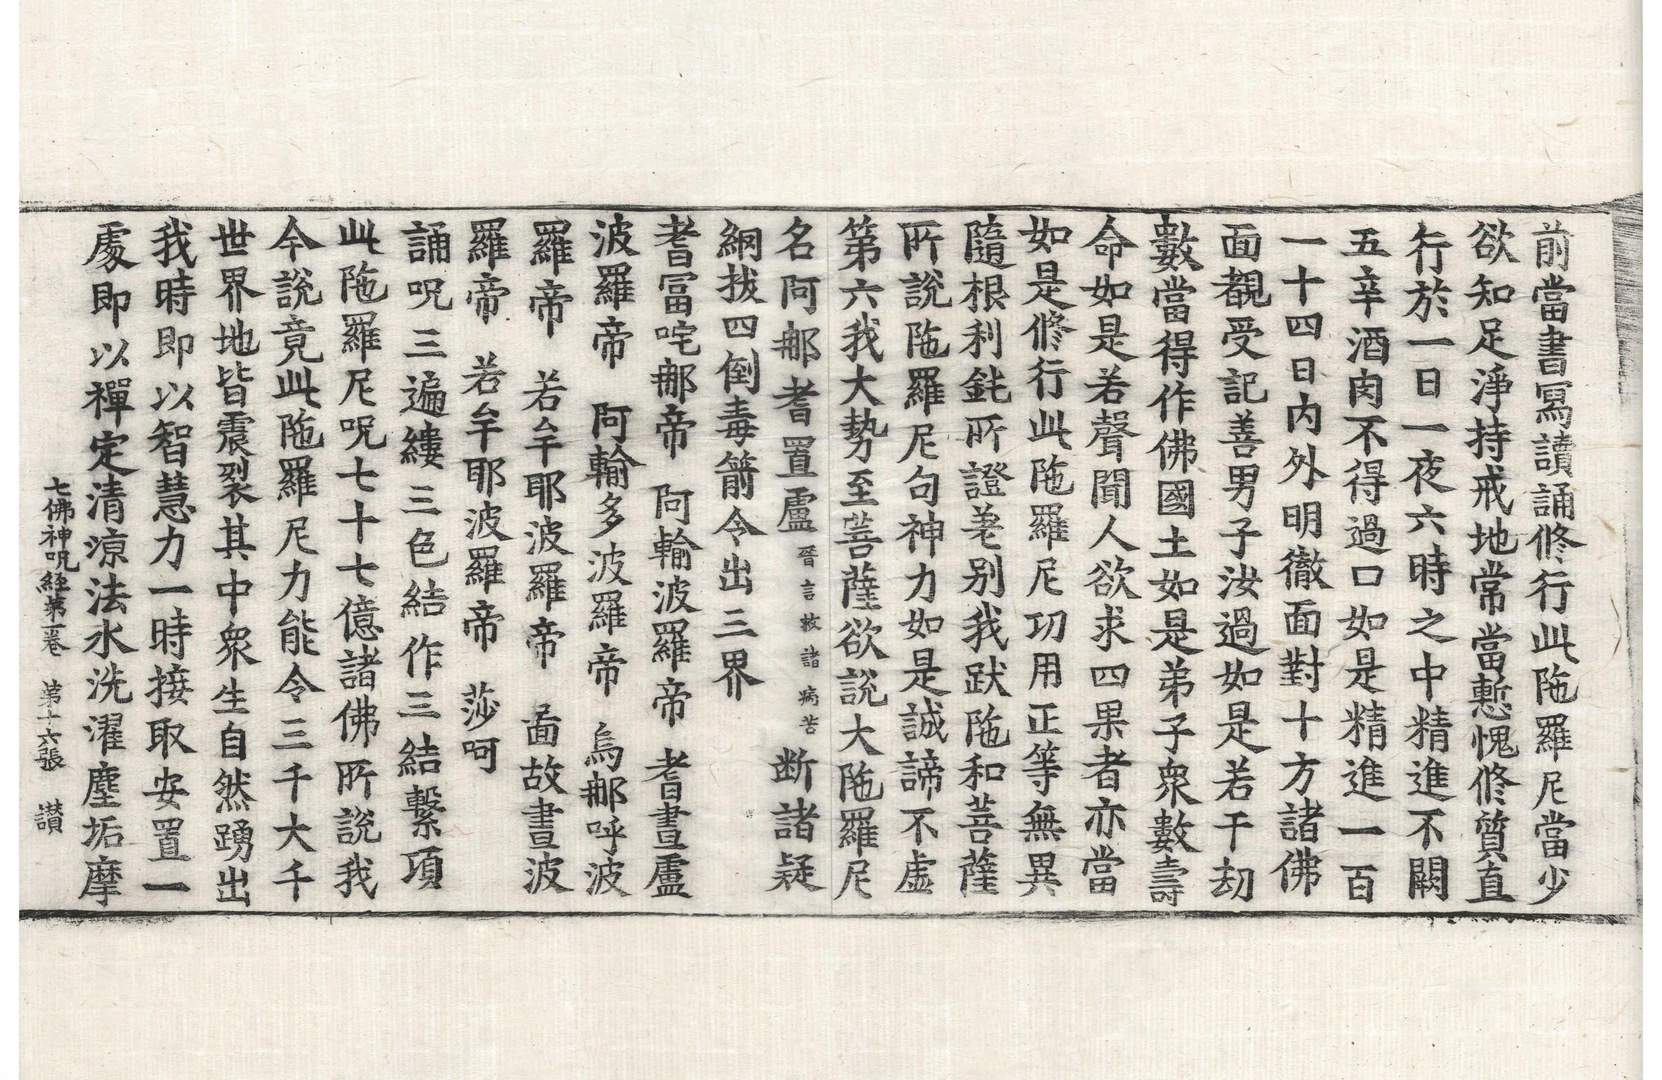 前當書寫讀誦修行此陁羅尼當少
欲知足淨持戒地常當慙愧修質直
行於一日一夜六時之中精進不闕
五辛酒肉不得過口如是精進一百
一十四日内外明徹面對十方諸佛
面覩受記善男子汝過如是若干劫
數當得作佛國土如是弟子衆數壽
命如是若聲聞人欲求四果者亦當
如是修行此陁羅尼功用正等無異
隨根利鈍所證差別我跋陁和菩薩
所說陁羅尼句神力如是誠諦不虛
第六我大勢至菩薩欲說大陁羅尼
名阿那耆置盧晉言救諸病苦断諸疑
網拔四倒毒箭令出三界
耆冨咤那帝　阿輸波羅帝　耆晝盧
波羅帝　阿輸多波羅帝　烏那呼波
羅帝　若牟耶波羅帝　畐故晝波
羅帝　若牟耶波羅帝　莎呵
誦呪三遍縷三色結作三結繫項
此陁羅尼呪七十七億諸佛所說我
今說竟此陁羅尼力能令三千大千
世界地皆震裂其中衆生自然踴出
我時即以智慧力一時接取安置一
處即以禪定清涼法水洗濯塵垢摩
七佛神呪経第一卷　第十六張　讃